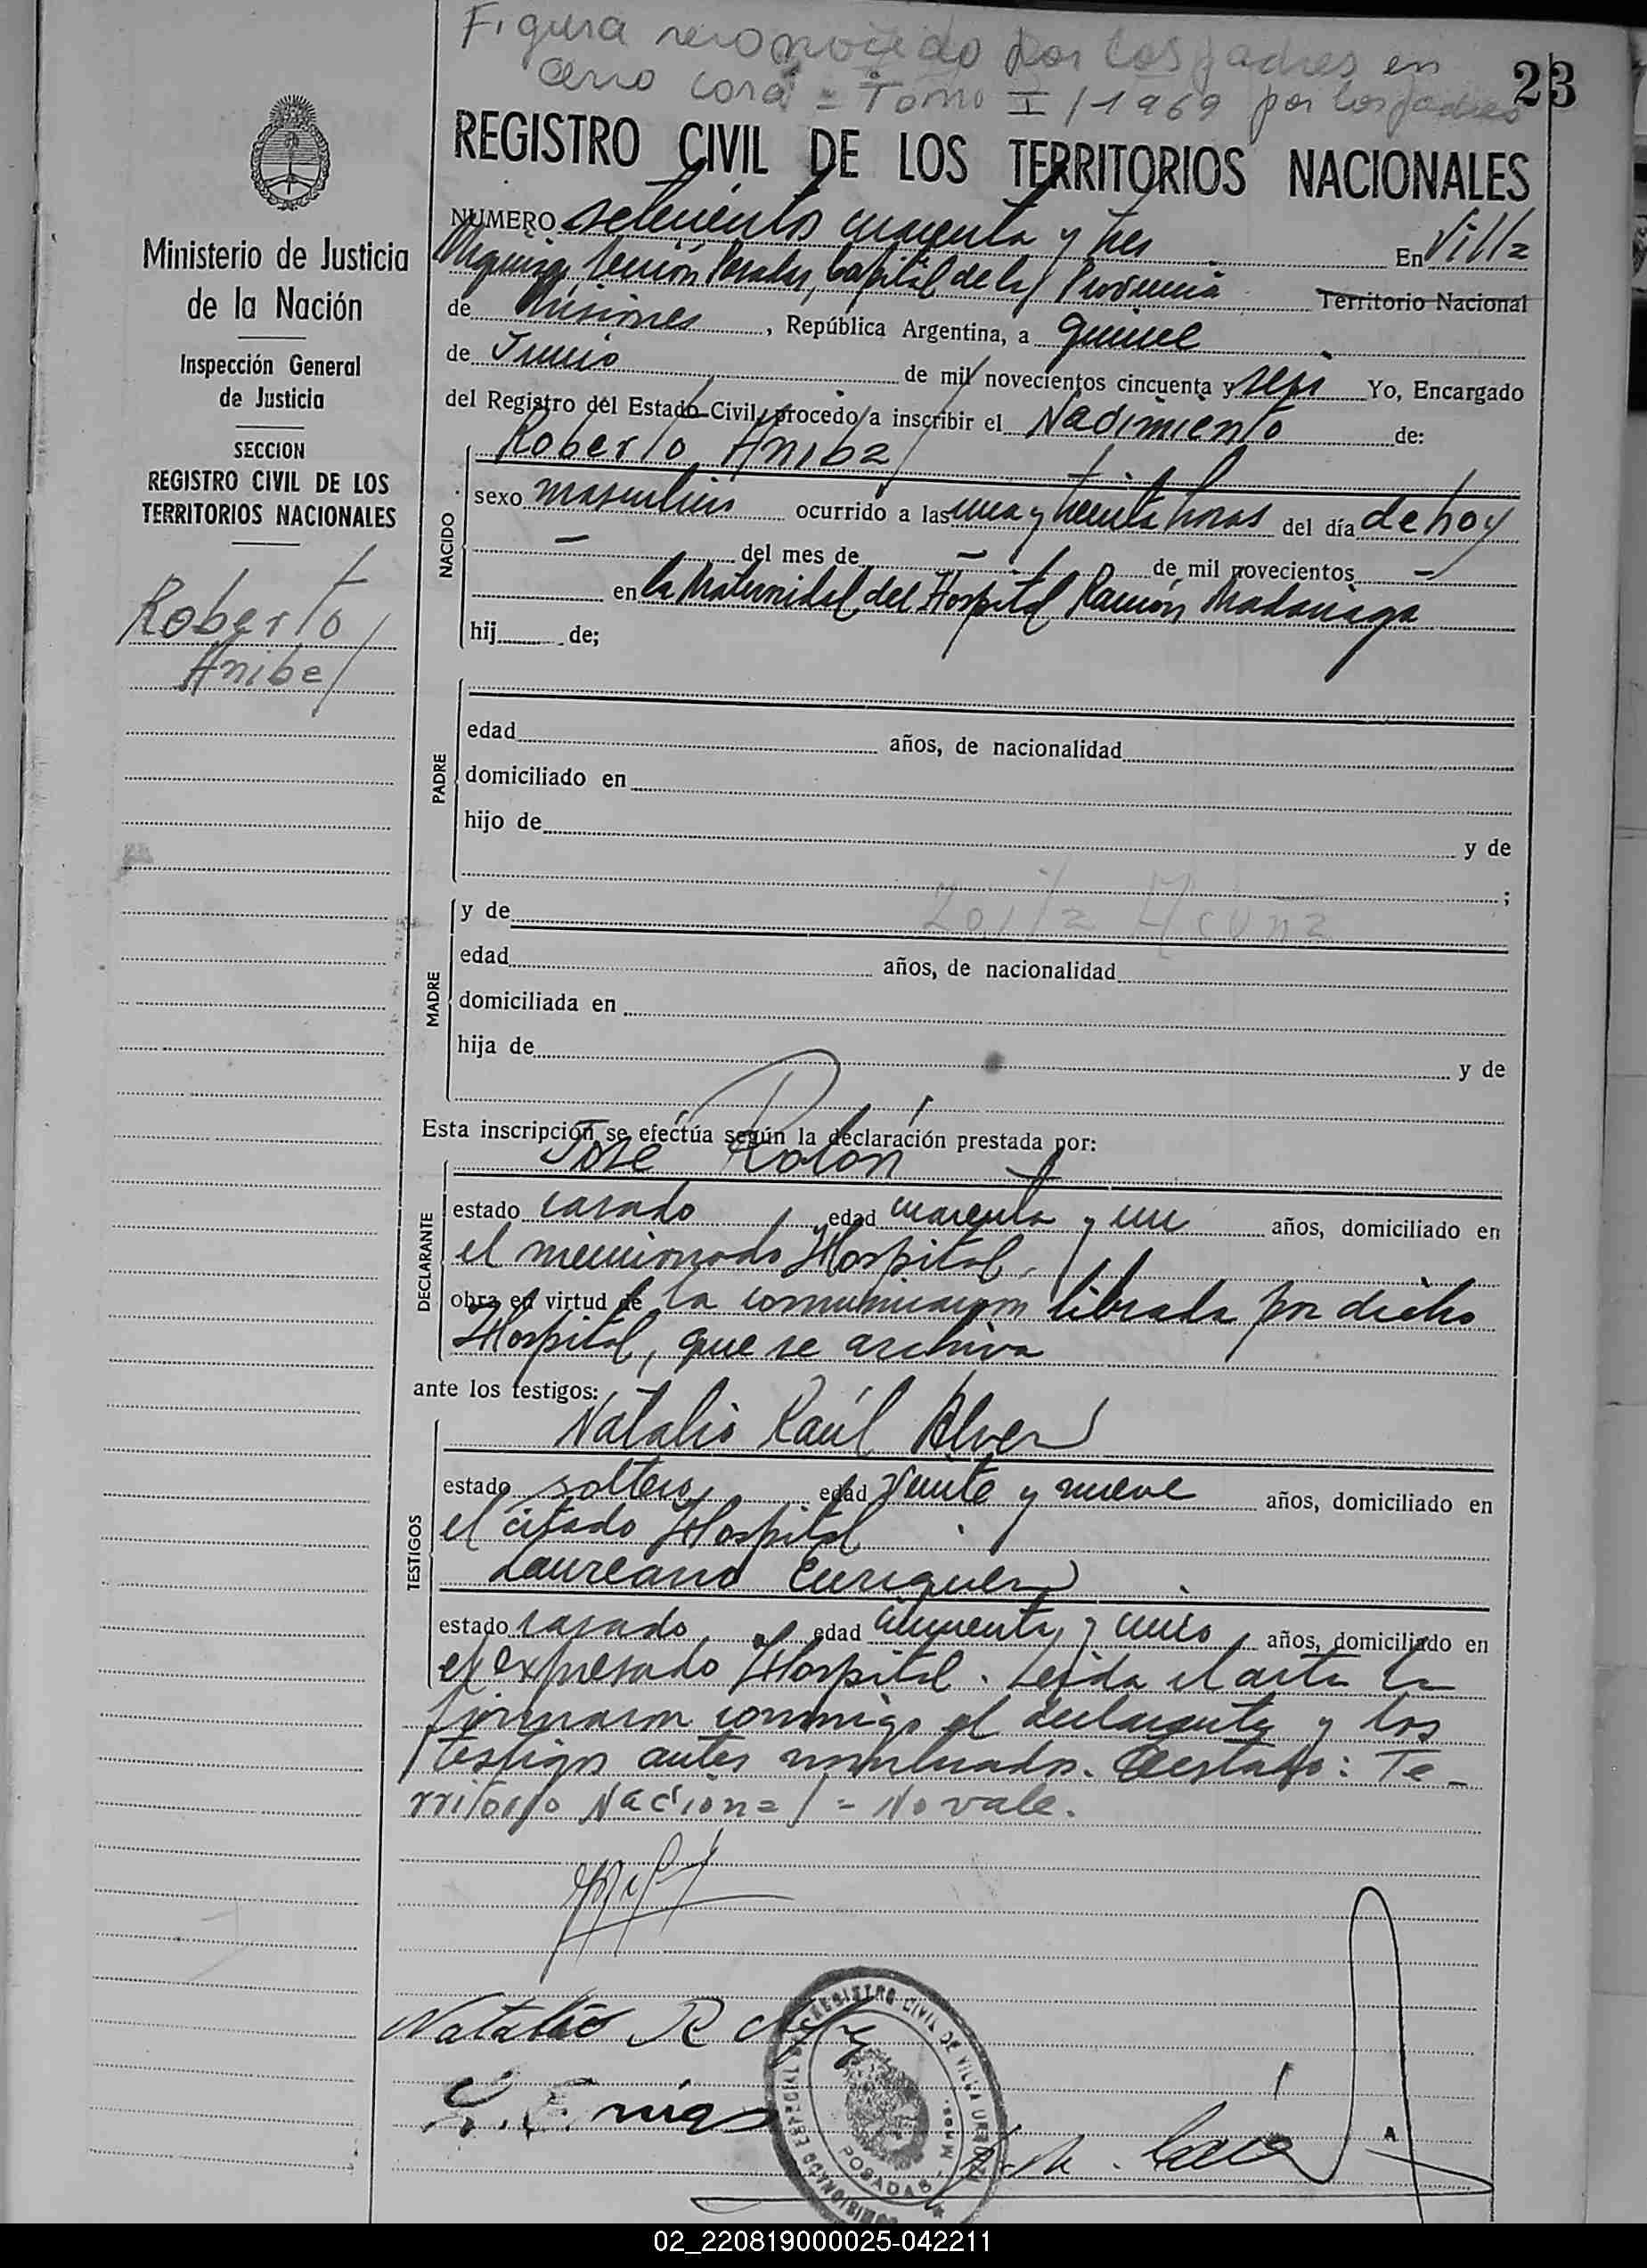 Figura reconocido por los padres en
cerro corá = Tomo I / 1969 por los padres
23
REGISTRO CIVIL DE LOS TERRITORIOS NACIONALES
Ministerio de Justicia
de la Nación
Inspección General
de Justicia
SECCION
REGISTRO CIVIL DE LOS
TERRITORIOS NACIONALES
Roberto
Anibal
NUMERO setecientos cuarenta y tres En Villa
Urquiza, Sección Posadas, Capital de la Provincia Territorio Nacional
de Misiones, República Argentina, a quince
de Junio de mil novecientos cincuenta y seis Yo, Encargado
del Registro del Estado Civil, procedo a inscribir el Nacimiento de:
NACIDO
Roberto Anibal
sexo masculino ocurrido a las una y treinta horas del día de hoy
— del mes de — de mil novecientos —
en la Maternidad del Hospital Ramón Madariaga
hij de;
PADRE
edad años, de nacionalidad
domiciliado en
hijo de y de
;
MADRE
y de Zoila Acuña
edad años, de nacionalidad
domiciliada en
hija de y de
Esta inscripción se efectúa según la declaración prestada por:
DECLARANTE
José Rolón
estado casado edad cuarenta y un años, domiciliado en
el mencionado Hospital.
obra en virtud de la comunicación librada por dicho
Hospital, que se archiva
ante los testigos:
TESTIGOS
Natalio Raúl Alvez
estado soltero edad veinte y nueve años, domiciliado en
el citado Hospital
Laureano Enriquez
estado casado, edad cincuenta y cinco años, domiciliado en
el expresado Hospital. Leída el acta la
firmaron conmigo el declarante y los
testigos antes nombrados. Testado: Te-
rritorio Nacional = No vale.
Natalio R
REGISTRO CIVIL DE VILLA URQUIZA
POSADAS
02_220819000025-042211